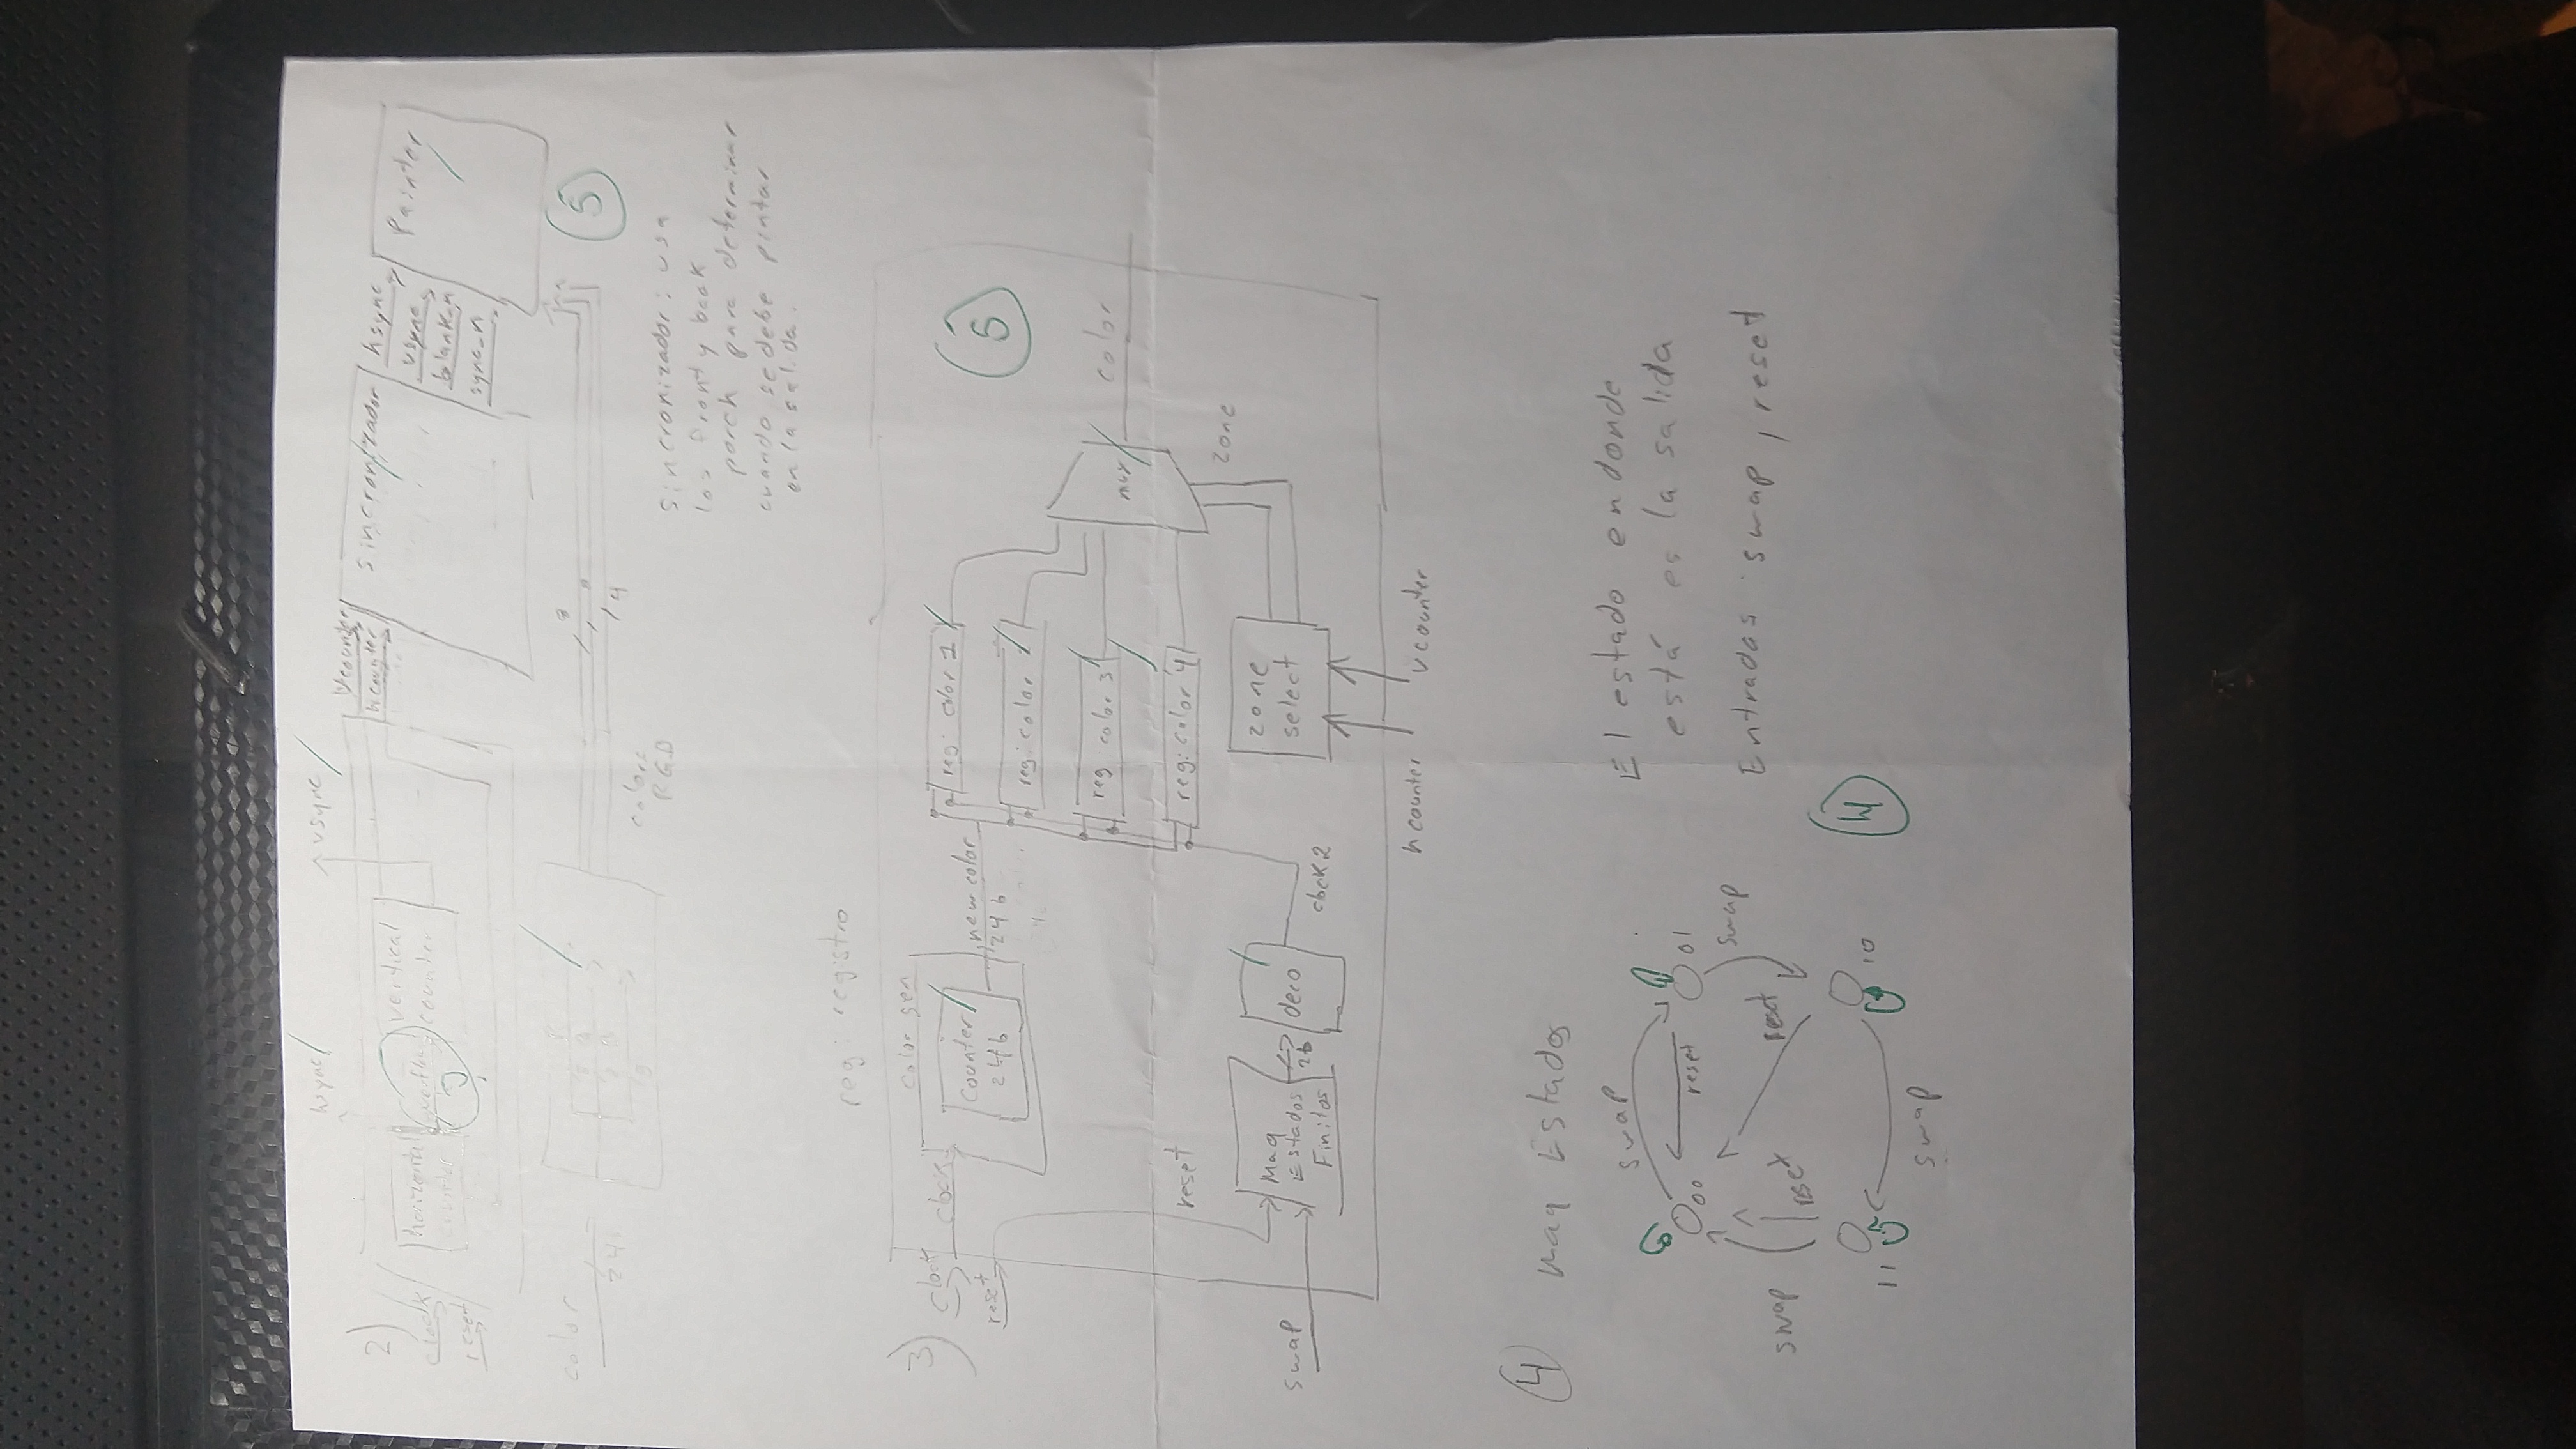 2)
hsync
vsync
clock
reset
horizontal
counter
overflow
vertical
counter
Vcounter
hcounter
sincronizador
hsync
vsync
blank_n
sync_n
Painter
color
24
8
8
8
colors
RGB
5
sincronizador: usa
los front y back
porch para determinar
cuando se debe pintar
en la salida.
reg: registro
3)
clock
clock
reset
color gen
counter
24b
new color
24b
reg: color 1
reg: color 2
reg: color 3
reg: color 4
mux
color
5
reset
zone
swap
Maq
Estados
Finitos
2b
deco
clock 2
zone
select
h counter
v counter
4
Maq Estados
swap
00
reset
01
swap
swap
reset
reset
11
10
swap
4
El estado en donde
está es la salida
Entradas swap, reset